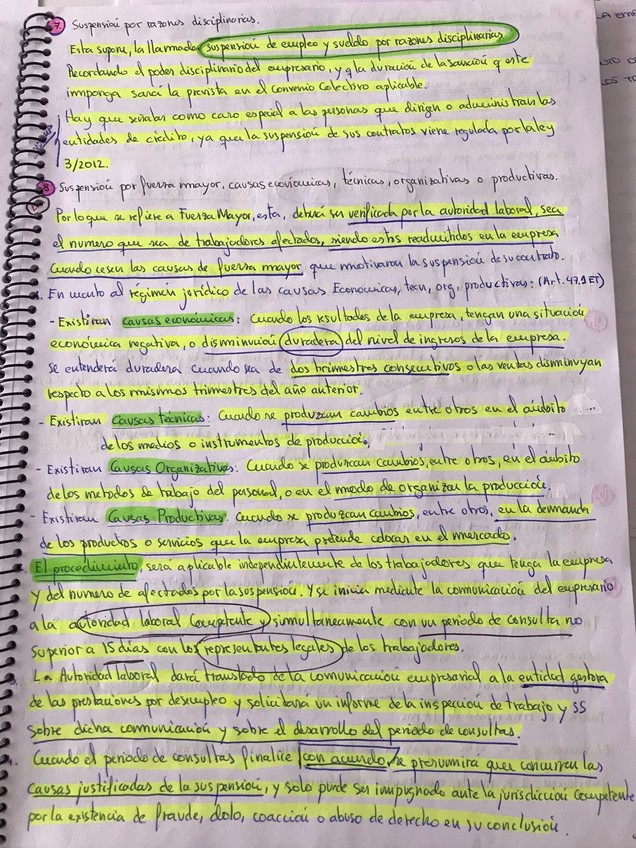 7 Suspensión por razones disciplinarias.
Esta supone, la llamada suspensión de empleo y sueldo por razones disciplinarias
Recordando el poder disciplinario del empresario, y q la duración de la sanción q este
imponga sará la prevista en el Convenio Colectivo aplicable.
Hay que señalar como caso especial a las personas que dirigen o administran las
entidades de crédito, ya que la suspensión de sus contratos viene regulada por la ley
3/2012.
8 Suspensión por fuerza mayor, causas económicas, técnicas, organizativas o productivas.
Por lo que se refiere a Fuerza Mayor, esta, deberá ser verificada por la autoridad laboral, sea
el numero que sea de trabajadores afectados, siendo estos readmitidos en la empresa
Cuando cesen las causas de fuerza mayor que motivaron la suspensión de su contrato.
En cuanto al régimen jurídico de las causas Economicas, tecn, org, productivas: (Art. 47.1 ET)
- Existiran causas económicas: Cuando los resultados de la empresa, tengan una situación
económica negativa, o disminución duradera del nivel de ingresos de la empresa.
Se entenderá duradera cuando sea de dos trimestres consecutivos o las ventas disminuyan
respecto a los mismos trimestres del año anterior.
- Existiran Causas técnicas: Cuando se produzcan cambios entre otros en el ámbito
de los medios o instrumentos de producción.
- Existiran Causas Organizativas: Cuando se produzcan cambios, entre otros, en el ámbito
de los metodos de trabajo del personal, o en el modo de organizar la producción.
- Existiran Causas Productivas. Cuando se produzcan cambios, entre otros, en la demanda
de los productos o servicios que la empresa pretende colocar en el mercado.
El procedimiento, será aplicable independientemente de los trabajadores que tenga la empresa
y del numero de afectados por la suspensión. Y se inicia mediante la comunicación del empresario
a la autoridad laboral competente y simultaneamente con un periodo de consulta no
superior a 15 días con los representantes legales de los trabajadores.
La Autoridad laboral dará traslado de la comunicación empresarial a la entidad gestora
de las prestaciones por desempleo y solicitará un informe de la inspección de trabajo y SS
sobre dicha comunicación y sobre el desarrollo del periodo de consultas.
Cuando el periodo de consultas finalice con acuerdo, se presumirá que concurren las
causas justificadas de la suspensión, y solo puede ser impugnado ante la jurisdicción competente
por la existencia de fraude, dolo, coacción o abuso de derecho en su conclusión.